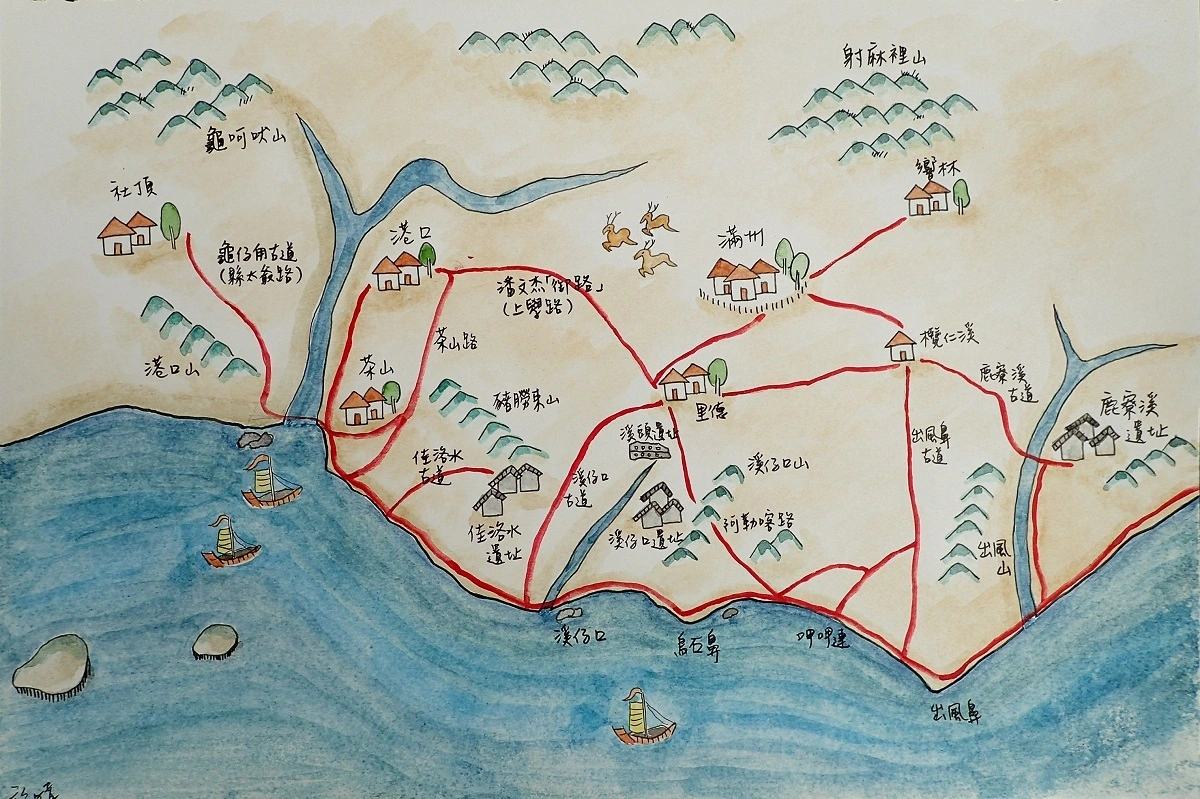 射麻裡山
龜呵吠山
響林
社頂
港口
滿州
龜仔甪古道
(縣太爺路)
潘文杰「御路」
(上學路)
欖仁溪
茶山路
港口山
茶山
鹿寮溪
古道
豬朥束山
里德
鹿寮溪
遺址
溪頭遺址
出風鼻
古道
佳洛水
古道
溪仔口山
溪仔口
古道
阿勒喀路
佳洛水
遺址
溪仔口遺址
出風
山
溪仔口
烏石鼻
呷呷連
出風鼻